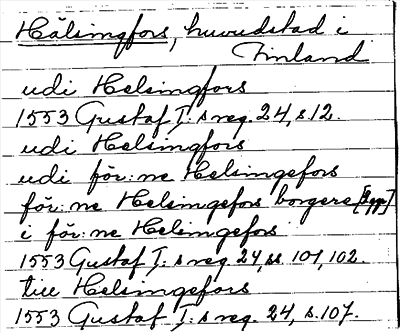 Hälsingfors, huvudstad i
Finland
udi Helsingfors
1553 Gustaf I:s reg. 24, s. 12.
udi Helsingfors
udi för:ne Helsingefors
för:ne Helsingefors borgere
i för:ne Helsingefors
1553 Gustaf I:s reg. 24, ss. 101, 102.
till Helsingefors
1553 Gustaf I:s reg. 24, s. 107.